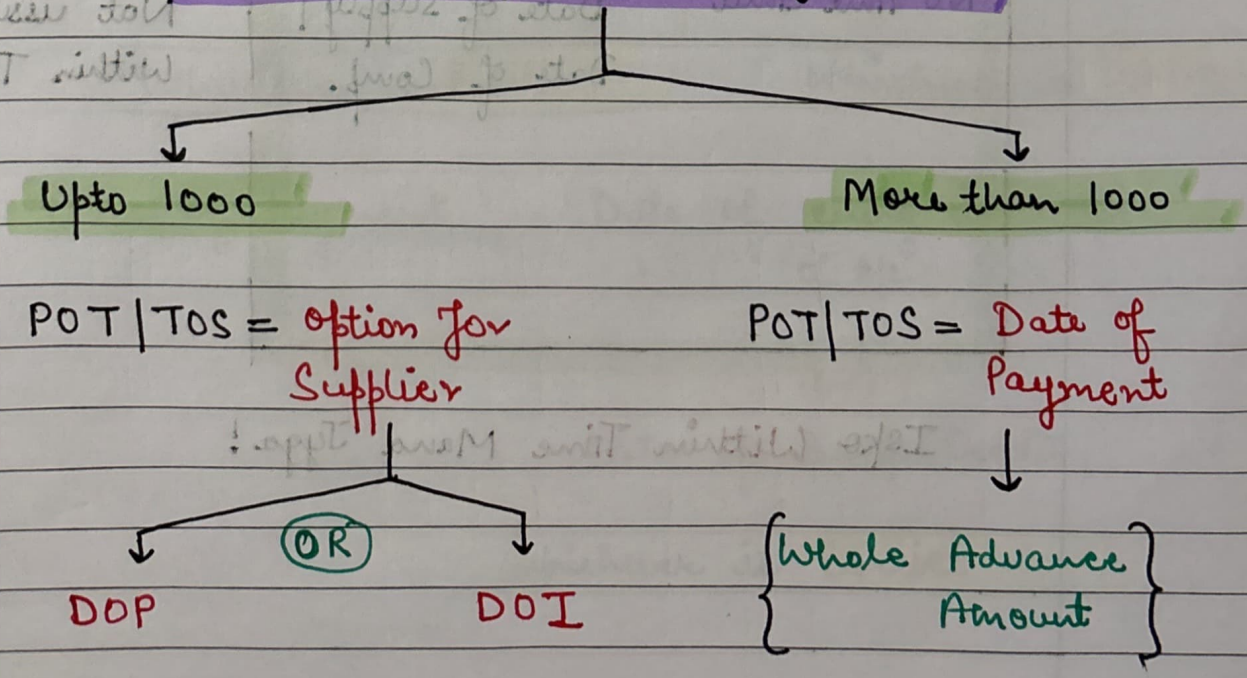 Upto 1000
More than 1000
POT|TOS = Option for
Supplier
POT|TOS = Date of
Payment
OR
DOP
DOI
Whole Advance
Amount